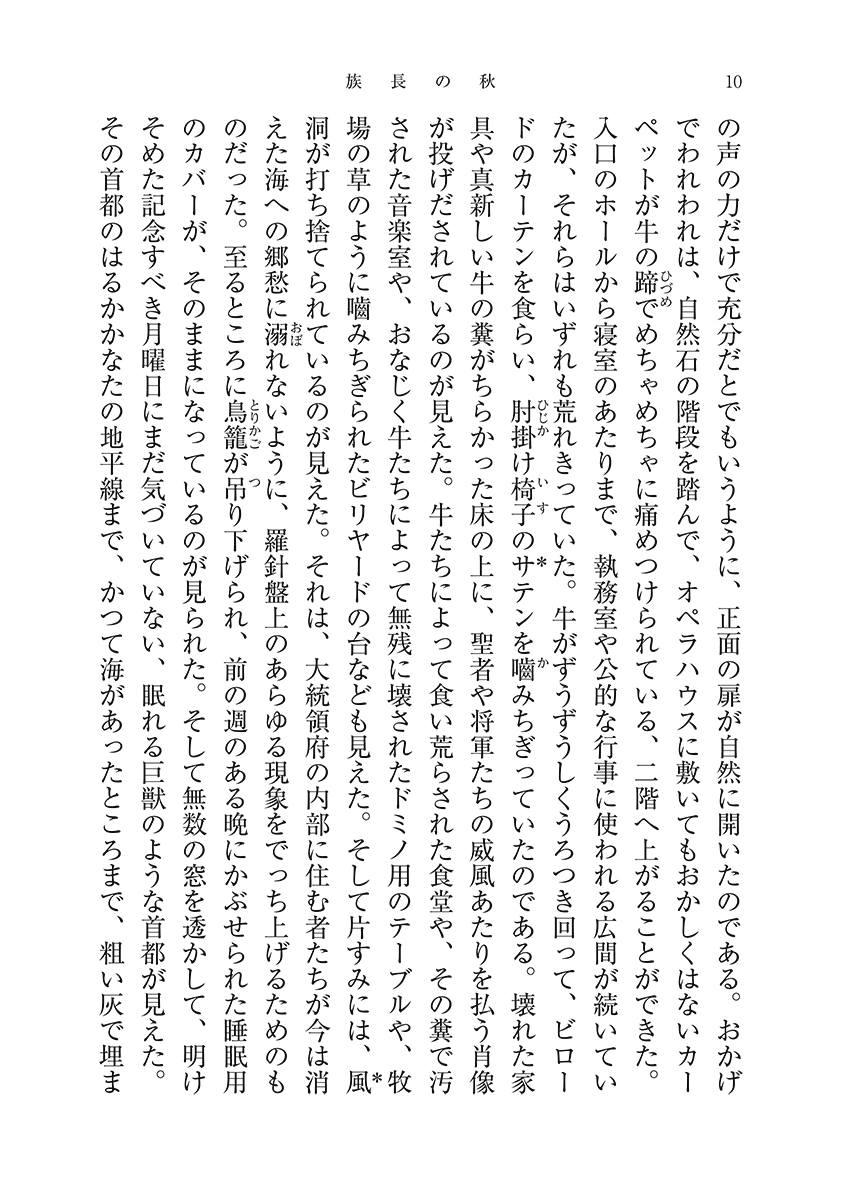 族長の秋
10
の声の力だけで充分だとでもいうように、正面の扉が自然に開いたのである。おかげ
でわれわれは、自然石の階段を踏んで、オペラハウスに敷いてもおかしくはないカー
ペットが牛の蹄でめちゃめちゃに痛めつけられている、二階へ上がることができた。
入口のホールから寝室のあたりまで、執務室や公的な行事に使われる広間が続いてい
たが、それらはいずれも荒れきっていた。牛がずうずうしくうろつき回って、ビロー
ドのカーテンを食らい、肘掛け椅子のサ*テンを嚙みちぎっていたのである。壊れた家
具や真新しい牛の糞がちらかった床の上に、聖者や将軍たちの威風あたりを払う肖像
が投げだされているのが見えた。牛たちによって食い荒らされた食堂や、その糞で汚
された音楽室や、おなじく牛たちによって無残に壊されたドミノ用のテーブルや、牧
場の草のように嚙みちぎられたビリヤードの台なども見えた。そして片すみには、風*
洞が打ち捨てられているのが見えた。それは、大統領府の内部に住む者たちが今は消
えた海への郷愁に溺れないように、羅針盤上のあらゆる現象をでっち上げるためのも
のだった。至るところに鳥籠が吊り下げられ、前の週のある晩にかぶせられた睡眠用
のカバーが、そのままになっているのが見られた。そして無数の窓を透かして、明け
そめた記念すべき月曜日にまだ気づいていない、眠れる巨獣のような首都が見えた。
その首都のはるかかなたの地平線まで、かつて海があったところまで、粗い灰で埋ま